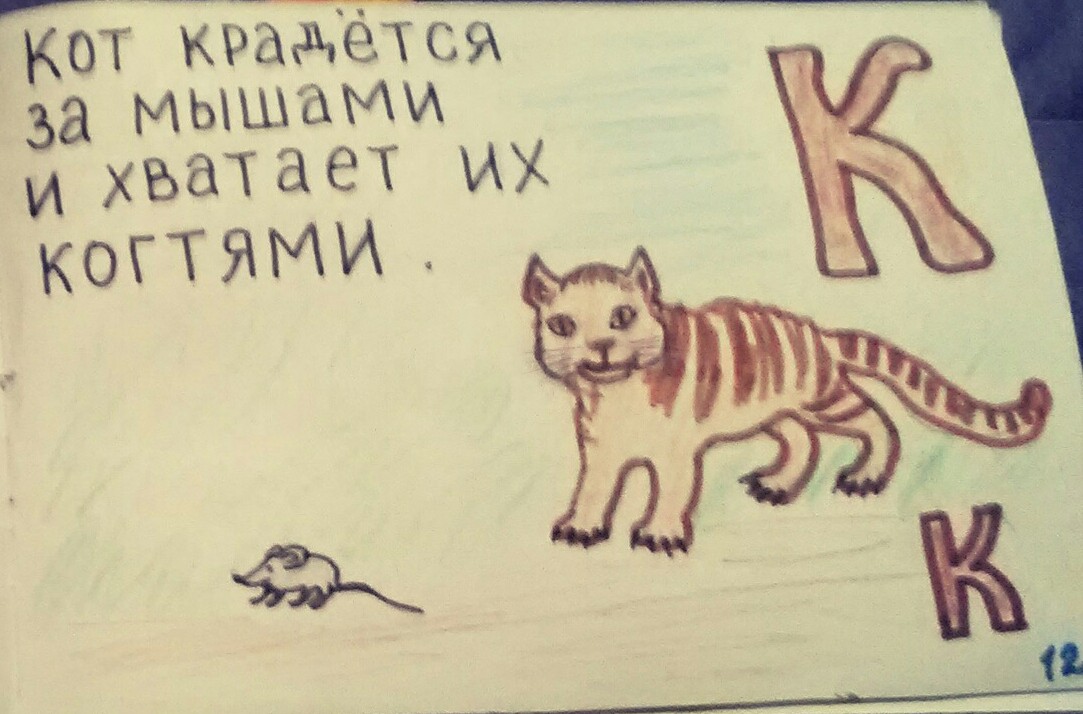 Кот крадётся
за мышами
и хватает их
когтями.
К
К
12